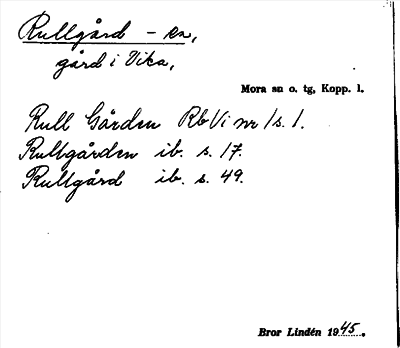 Rullgård - en,
gård i Vika,
Mora sn o. tg, Kopp. l.
Rull Gården RbVi nr 1 s. 1.
Rullgården ib. s. 17.
Rullgård ib. s. 49.
Bror Lindén 1945.